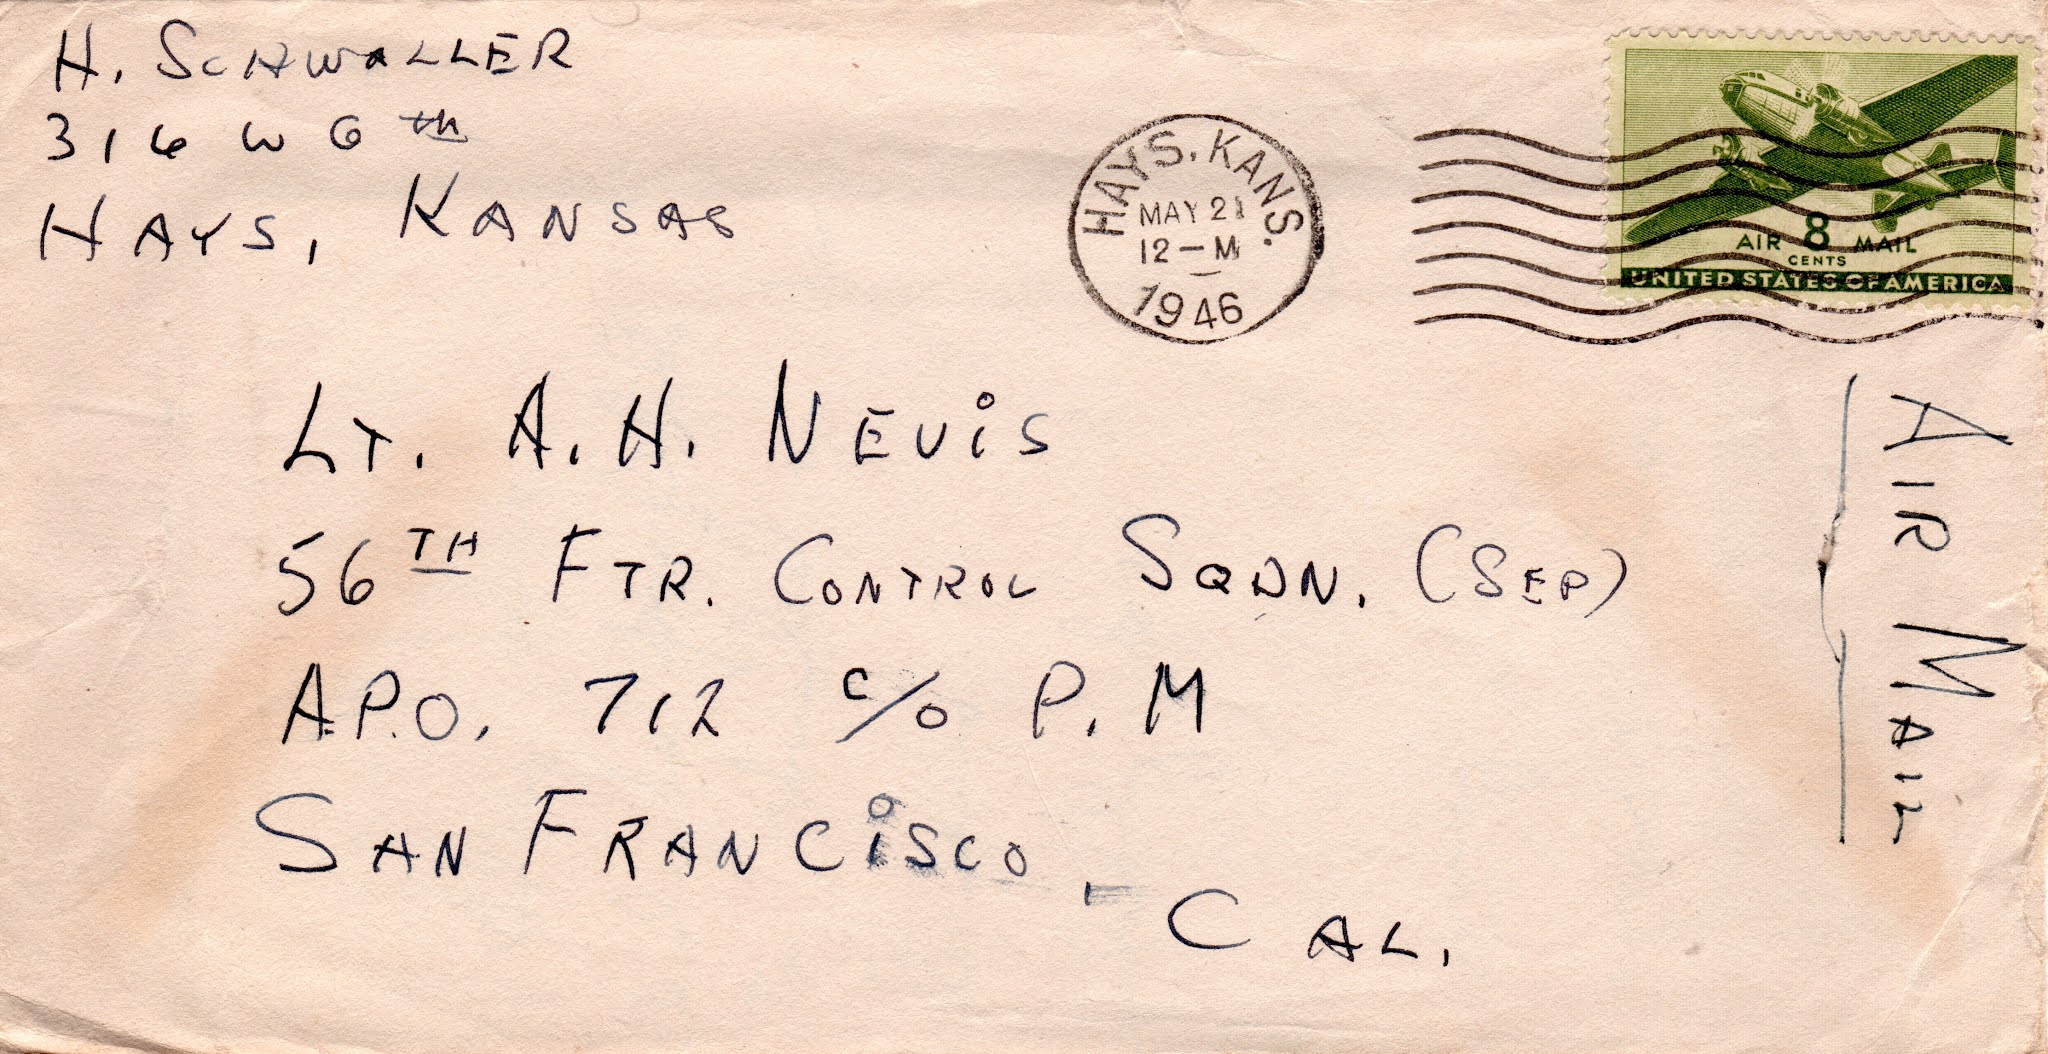 H. SCHWALLER
316 W 6TH
HAYS, KANSAS
HAYS, KANS.
MAY 21
12-M
1946
AIR 8 MAIL
CENTS
UNITED STATES OF AMERICA
LT. A.H. NEViS
56TH FTR. CONTROL SQDN. (SEP)
A.P.O. 712 c/o P.M
SAN FRANCiSCO,
CAL.
AIR MAIL